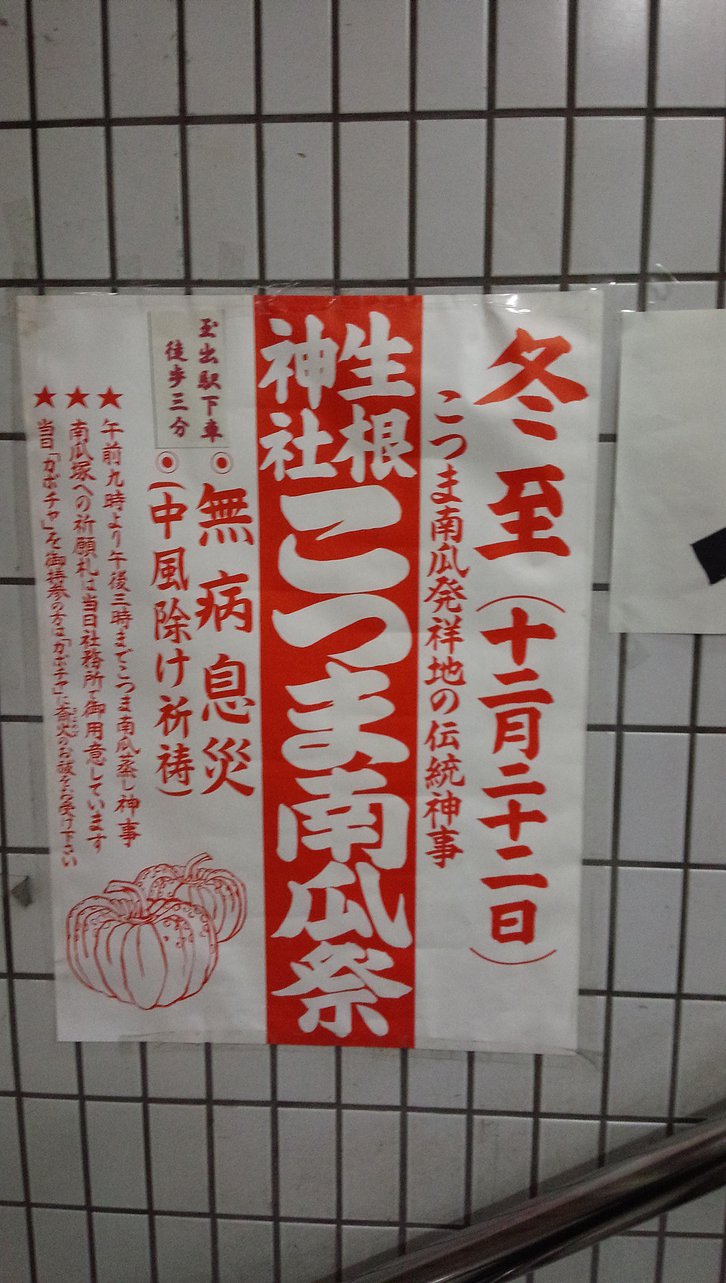 冬至(十二月二十二日)
こつま南瓜発祥地の伝統神事
生根神社
こつま南瓜祭
玉出駅下車
徒歩三分
◉無病息災
◉(中風除け祈祷)
★午前九時より午後三時までこつま南瓜蒸し神事
★南瓜塚への祈願札は当日社務所で御用意しています
★当日「カボチャ」を御持参の方は「カボチャ」に斎火のお祓をお受け下さい